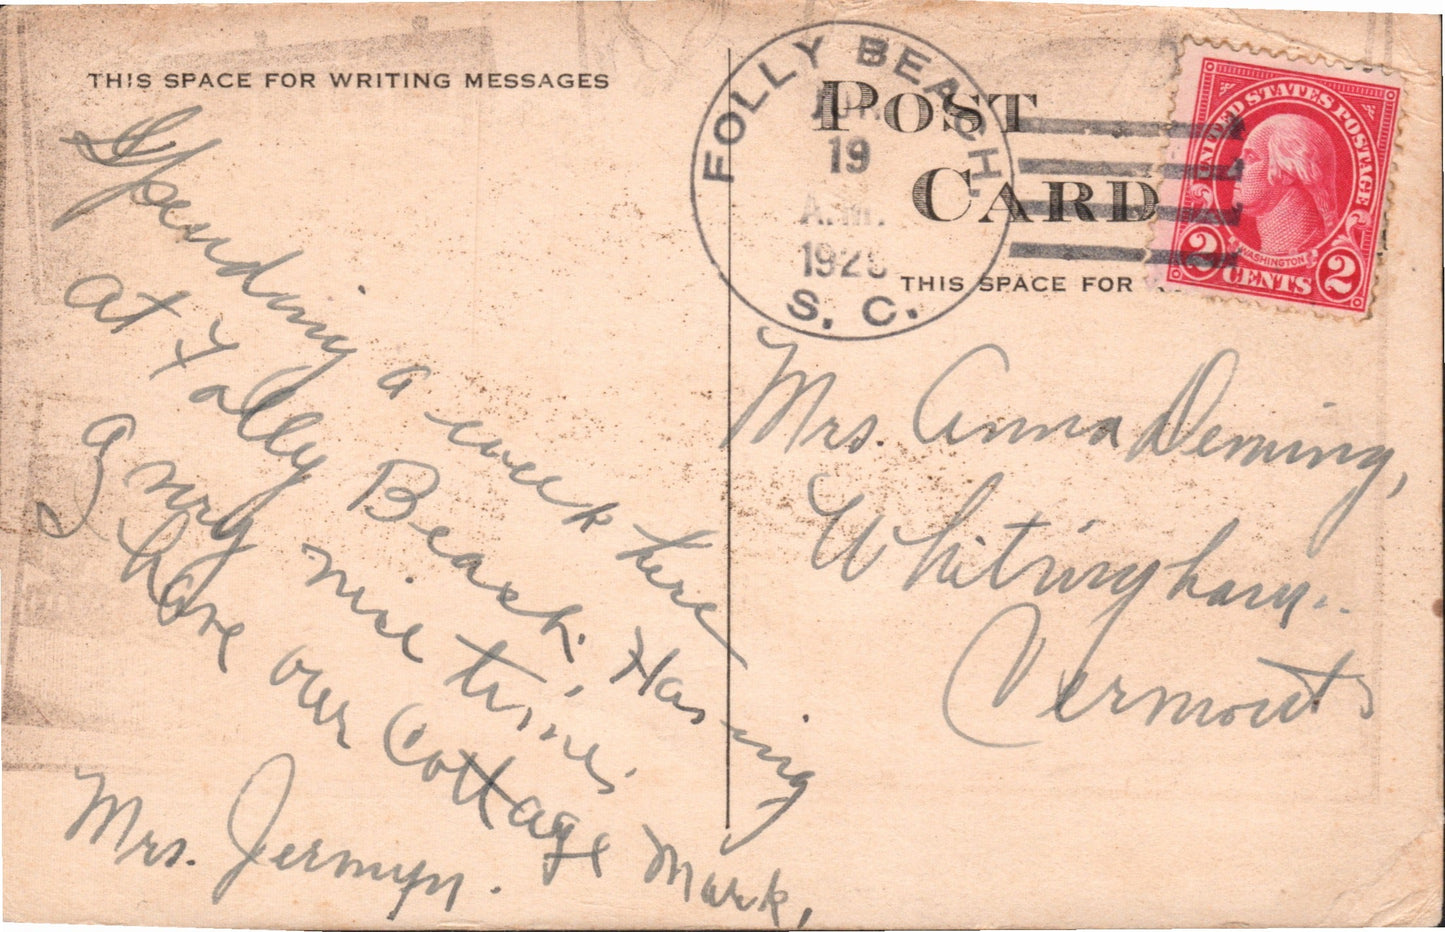 THIS SPACE FOR WRITING MESSAGES
Spending a week here
at Folly Beach. Having
a very nice time.
I have our Cottage Mark,
Mrs. Jermyn.
POST
CARD
THIS SPACE FOR
FOLLY BEACH.
19
A.M.
S. C.
UNITED STATES POSTAGE
WASHINGTON
2 CENTS 2
Mrs. Anna Deming,
Whitingham..
Vermont.